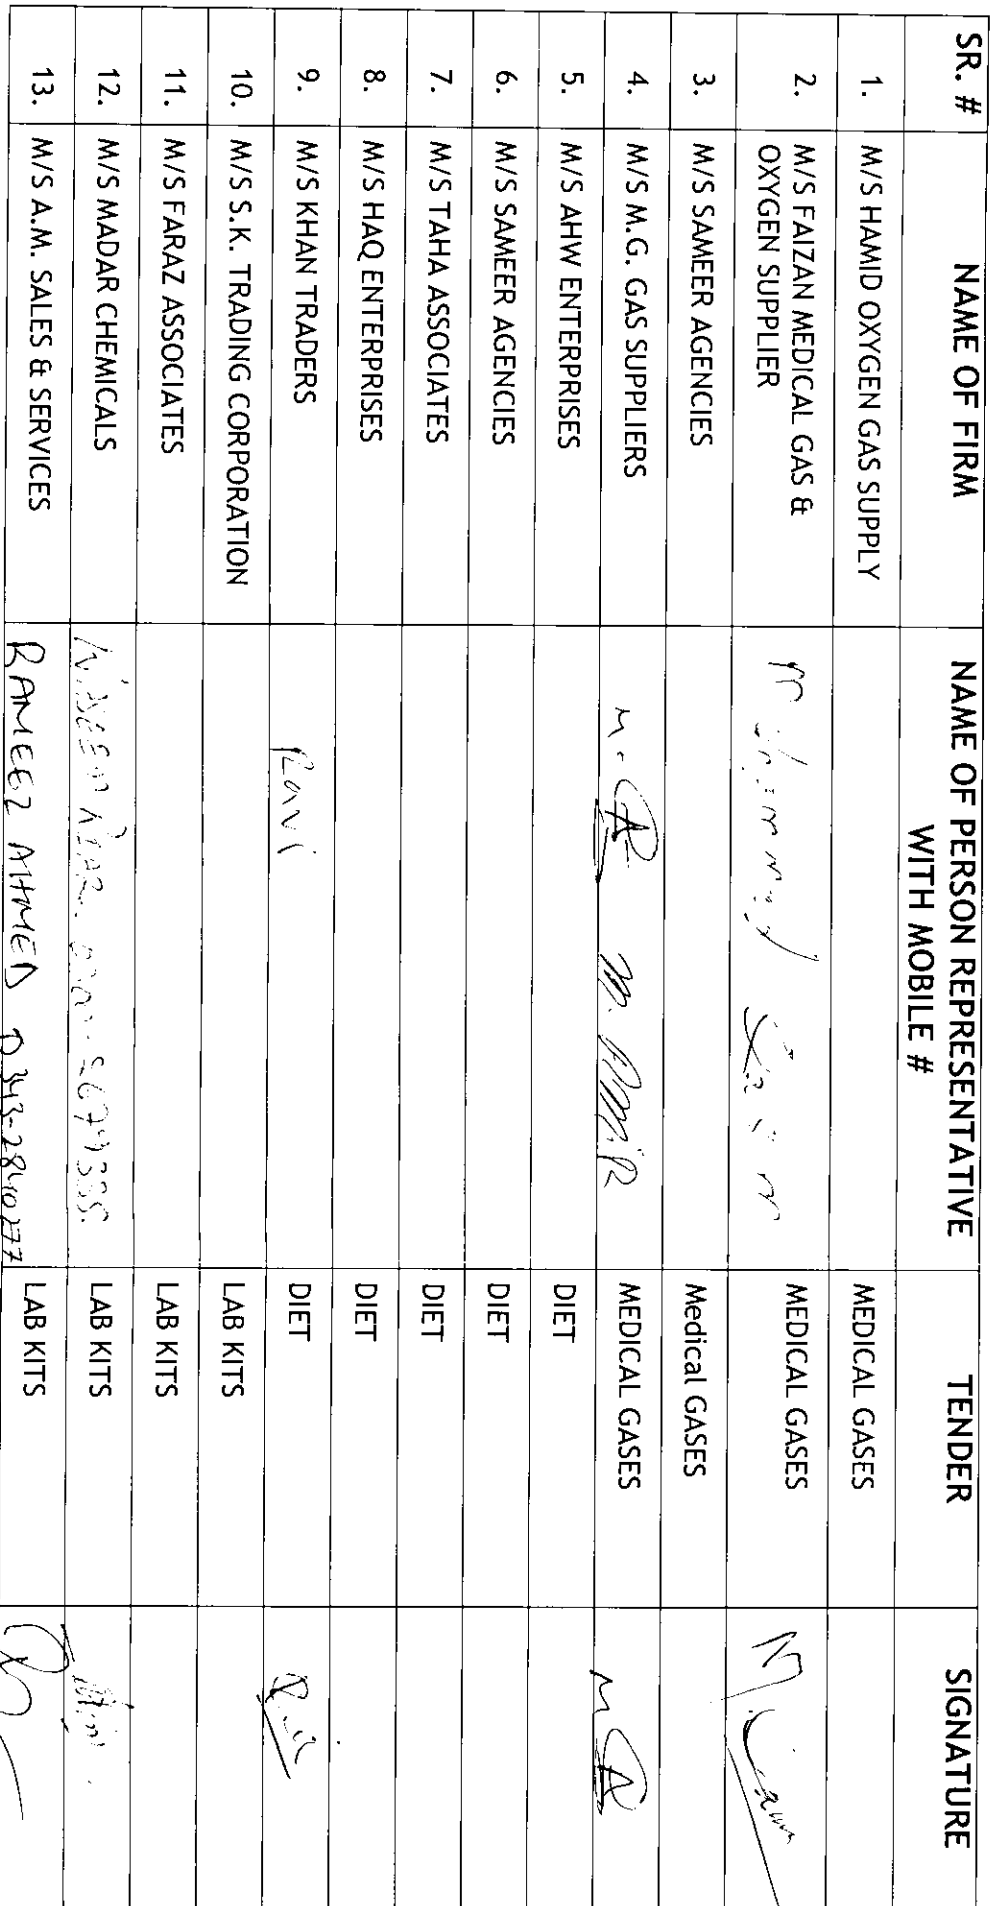 SR. # NAME OF FIRM NAME OF PERSON REPRESENTATIVE WITH MOBILE # TENDER SIGNATURE
1. M/S HAMID OXYGEN GAS SUPPLY MEDICAL GASES
2. M/S FAIZAN MEDICAL GAS & OXYGEN SUPPLIER MEDICAL GASES
3. M/S SAMEER AGENCIES Medical GASES
4. M/S M.G. GAS SUPPLIERS MEDICAL GASES
5. M/S AHW ENTERPRISES DIET
6. M/S SAMEER AGENCIES DIET
7. M/S TAHA ASSOCIATES DIET
8. M/S HAQ ENTERPRISES DIET
9. M/S KHAN TRADERS Ravi DIET
10. M/S S.K. TRADING CORPORATION LAB KITS
11. M/S FARAZ ASSOCIATES LAB KITS
12. M/S MADAR CHEMICALS LAB KITS
13. M/S A.M. SALES & SERVICES RAMEEZ AHMED 0343-2840277 LAB KITS